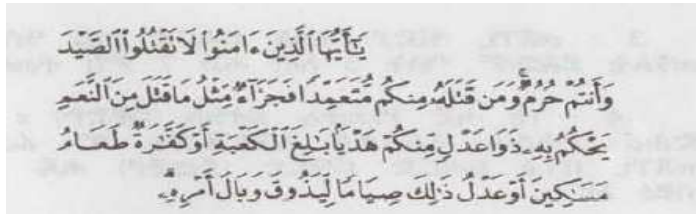 يَٰٓأَيُّهَا ٱلَّذِينَ ءَامَنُوا۟ لَا تَقْتُلُوا۟ ٱلصَّيْدَ
وَأَنتُمْ حُرُمٌ ۚ وَمَن قَتَلَهُۥ مِنكُم مُّتَعَمِّدًا فَجَزَآءٌ مِّثْلُ مَا قَتَلَ مِنَ ٱلنَّعَمِ
يَحْكُمُ بِهِۦ ذَوَا عَدْلٍ مِّنكُمْ هَدْيًۢا بَٰلِغَ ٱلْكَعْبَةِ أَوْ كَفَّٰرَةٌ طَعَامُ
مَسَٰكِينَ أَوْ عَدْلُ ذَٰلِكَ صِيَامًا لِّيَذُوقَ وَبَالَ أَمْرِهِۦ ۗ